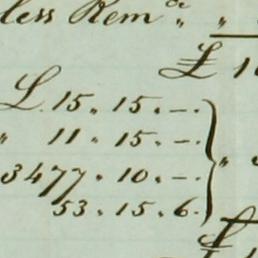 less Rem de " "
£ 1
L. 15 " 15 " — .
" 11 " 15 " — .
3477 " 10 " — . "
53 " 15 " 6 .
£